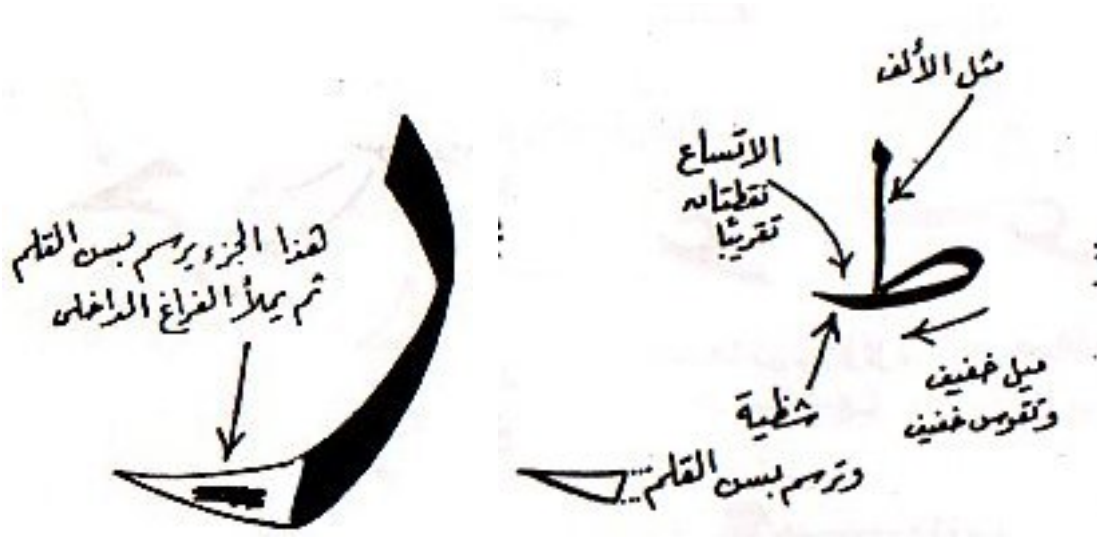 مثل الألف
الاتساع
نقطتان
تقريبًا
ميل خفيف
وتقوس خفيف
شظية
وترسم بسن القلم
هذا الجزء يرسم بسن القلم
ثم يملأ الفراغ الداخلى